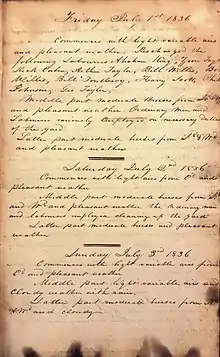 Friday July 1st 1836
Commences with light variable airs
and pleasant weather. Discharged the
following Labourers Abraham King,
Rich Cates, Arthur Tayler, Bill Willis,
Bill Fontleroy, Harry Scott,
Johnson, Geo Tyler,
Middle part moderate breezes from
and pleasant weather. Ordinary men and
Labourers variously employed on necessary duties
of the yard
Latter part moderate breezes from S &
and pleasant weather
Saturday July 2nd 1836
Commences with light airs from Sd and
pleasant weather
Middle part moderate breezes from
and Wd and pleasant weather the Ordinary men
and Labourers employed cleaning up the yard
Latter part moderate breezes and pleasant
weather
Sunday July 3rd 1836
Commences with light variable airs from
Sd and pleasant weather
Middle part light variable airs and
Cloudy weather
Latter part moderate breezes from
& Wd and cloudy